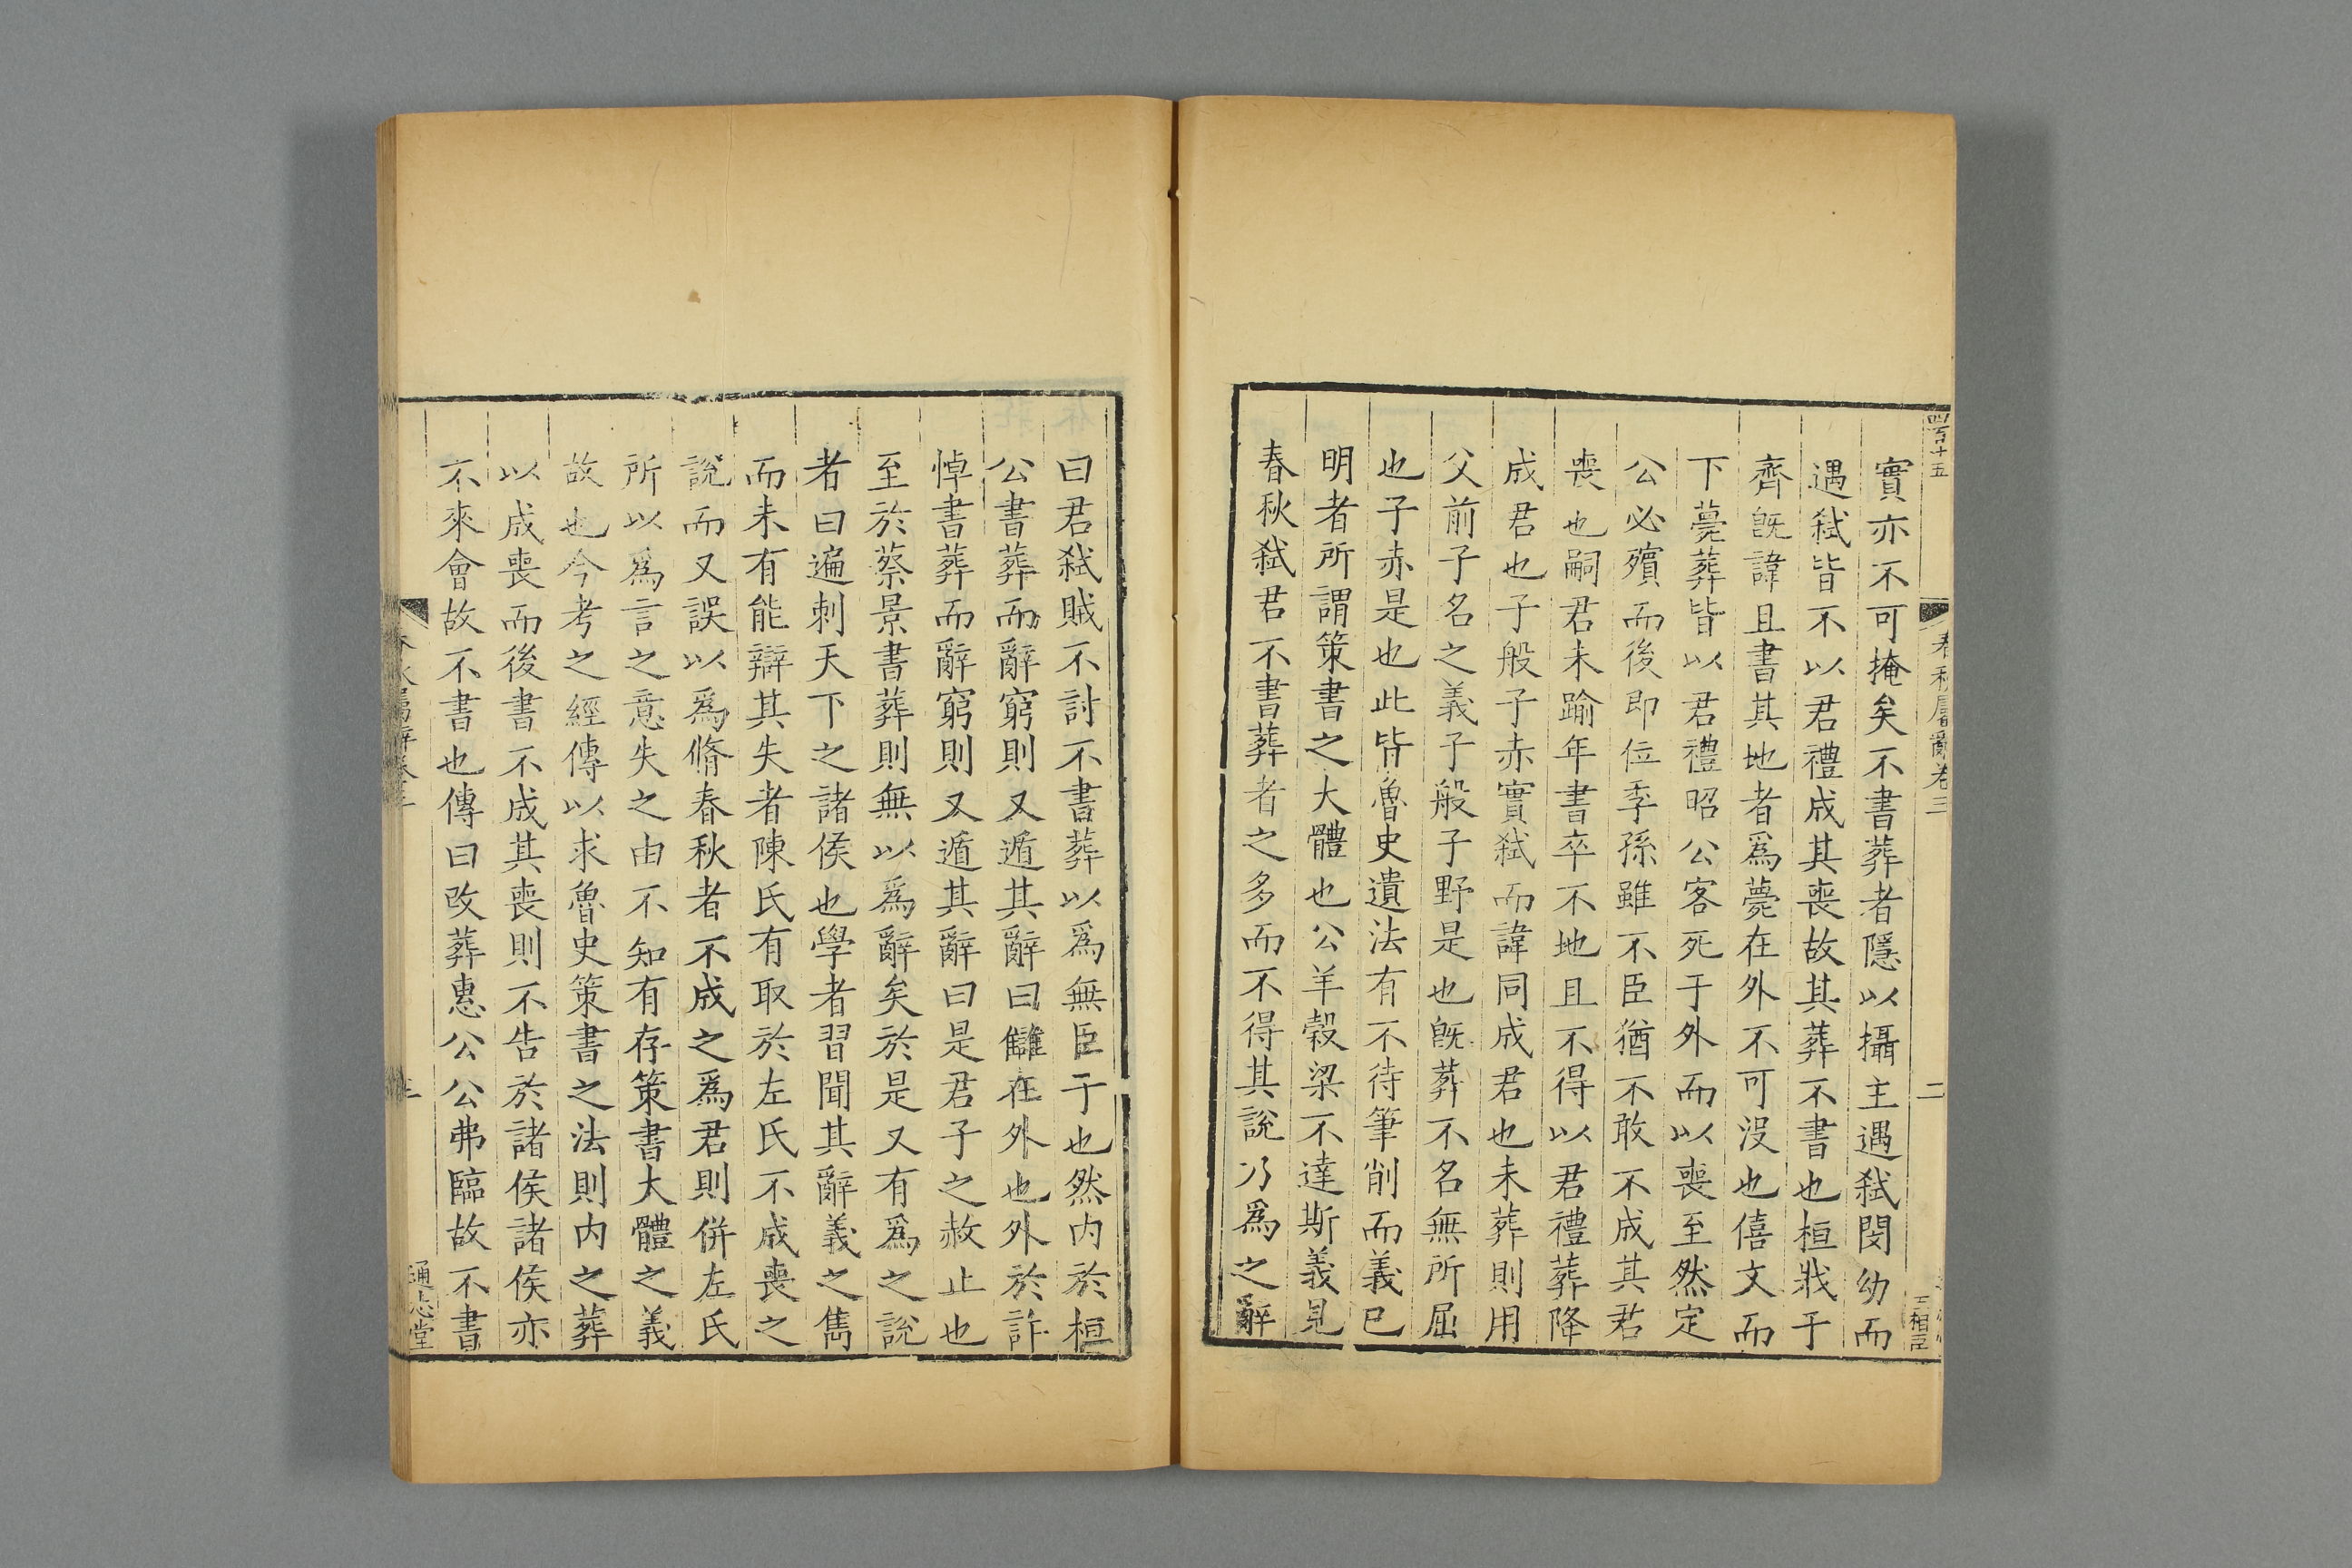 四百十五
春秋屬辭卷三
二
王相臣
實亦不可掩矣不書葬者隱以攝主遇弑閔幼而
遇弑皆不以君禮成其喪故其葬不書也桓戕于
齊旣諱且書其地者爲薨在外不可沒也僖文而
下薨葬皆以君禮昭公客死于外而以喪至然定
公必殯而後即位季孫雖不臣猶不敢不成其君
喪也嗣君未踰年書卒不地且不得以君禮葬降
成君也子般子赤實弑而諱同成君也未葬則用
父前子名之義子般子野是也旣葬不名無所屈
也子赤是也此皆魯史遺法有不待筆削而義已
明者所謂策書之大體也公羊穀梁不達斯義見
春秋弑君不書葬者之多而不得其說乃爲之辭
曰君弑賊不討不書葬以爲無臣子也然内於桓
公書葬而辭窮則又遁其辭曰讎在外也外於許
悼書葬而辭窮則又遁其辭曰是君子之赦止也
至於蔡景書葬則無以爲辭矣於是又有爲之說
者曰遍刺天下之諸侯也學者習聞其辭義之雋
而未有能辯其失者陳氏有取於左氏不成喪之
說而又誤以爲脩春秋者不成之爲君則併左氏
所以爲言之意失之由不知有存策書大體之義
故也今考之經傳以求魯史策書之法則内之葬
以成喪而後書不成其喪則不告於諸侯諸侯亦
不來會故不書也傳曰改葬惠公公弗臨故不書
春秋屬辭卷三
三
通志堂